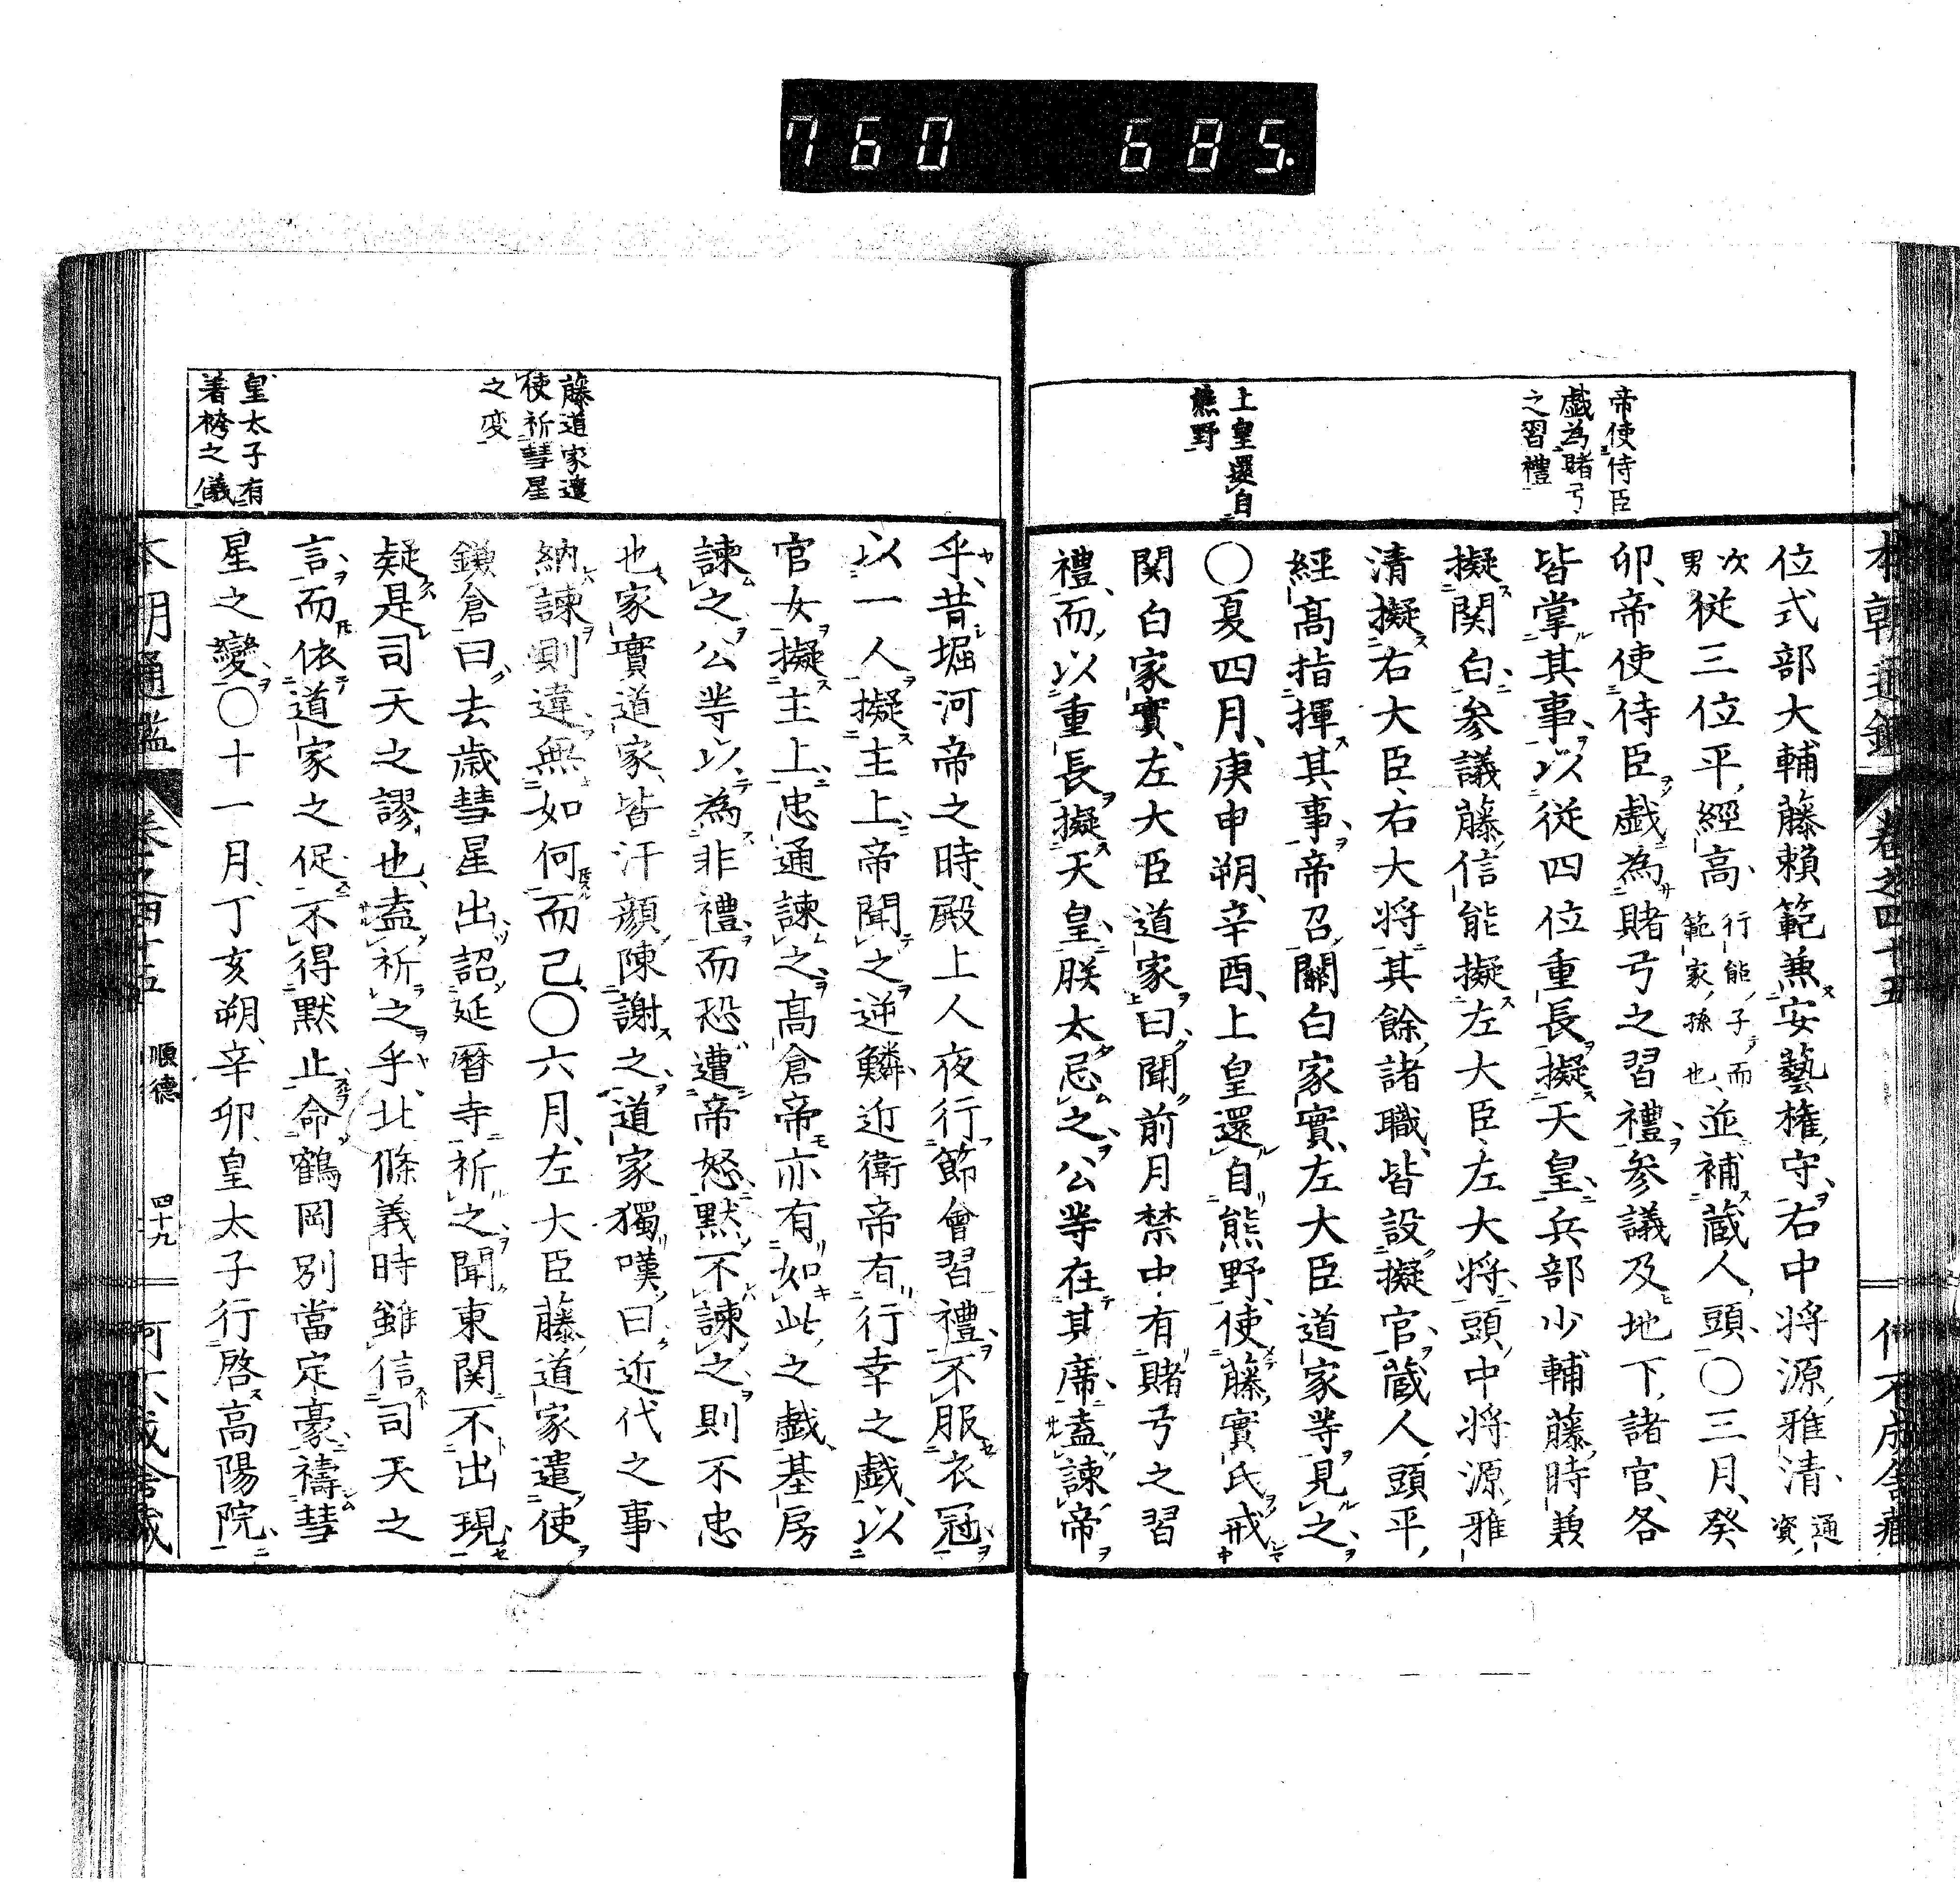 760 685.
帝使侍臣
戯為賭弓
之習禮
上皇還自
熊野
位式部大輔藤賴範兼安藝權守右中将源雅清通資
次男従三位平經高行能子而範家孫也並補蔵人頭〇三月癸
卯帝使侍臣戯為賭弓之習禮参議及地下諸官各
皆掌其事以従四位重長擬天皇兵部少輔藤時兼
擬関白参議藤信能擬左大臣左大将頭中将源雅
清擬右大臣右大将其餘諸職皆設擬官蔵人頭平
經高指揮其事帝召關白家實左大臣道家等見之
〇夏四月庚申朔辛酉上皇還自熊野使藤實氏戒
関白家實左大臣道家曰聞前月禁中有賭弓之習
禮而以重長擬天皇朕太忌之公等在其席盍諫帝
藤道家遣
使祈彗星
之変
皇太子有
着袴之儀
乎昔堀河帝之時殿上人夜行節會習禮不服衣冠
以一人擬主上帝聞之逆鱗近衛帝有行幸之戯以
官女擬主上忠通諫之高倉帝亦有如此之戯基房
諫之公等以為非禮而恐遭帝怒默不諫之則不忠
也家實道家皆汗顔陳謝之道家獨嘆曰近代之事
納諫則違無如何而已〇六月左大臣藤道家遣使
鎌倉曰去歳彗星出詔延暦寺祈之聞東関不出現
疑是司天之謬也盍祈之乎北條義時雖信司天之
言而依道家之促不得默止命鶴岡別當定豪禱彗
星之變〇十一月丁亥朔辛卯皇太子行啓高陽院
順德
四十九